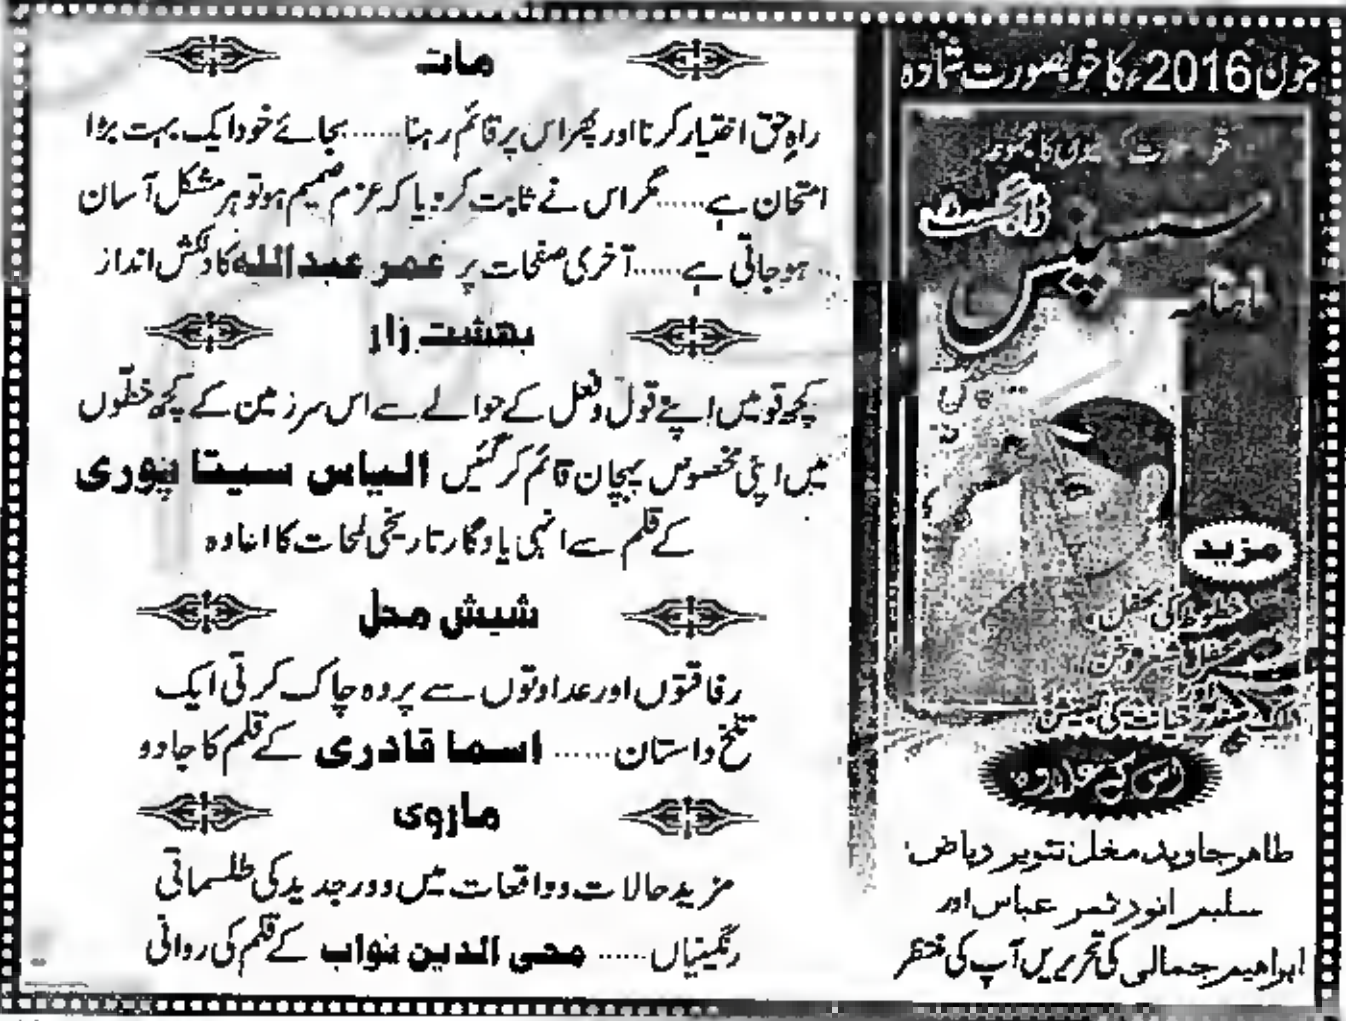 جون 2016ء کا خوبصورت شمارہ
کا مجموعہ
ڈائجسٹ
سسپنس
ماہنامہ
مزید
خطوط کی محفل
اس کے علاوہ
طاہر جاوید مغل تنویر ریاض
سلیم انور ثمر عباس اور
ابراہیم جمالی کی تحریریں آپ کی منتظر
مات
راہِ حق اختیار کرنا اور پھر اس پر قائم رہنا...... بجائے خود ایک بہت بڑا
امتحان ہے...... مگر اس نے ثابت کر دیا کہ عزم صمیم ہو تو ہر مشکل آسان
ہو جاتی ہے...... آخری صفحات پر عمر عبداللہ کا دلکش انداز
بہشت زار
کچھ قومیں اپنے قول و فعل کے حوالے سے اس سرزمین کے کچھ خطّوں
میں اپنی مخصوص پہچان قائم کر گئیں الیاس سیتا پوری
کے قلم سے انہی یادگار تاریخی لمحات کا اعادہ
شیش محل
رفاقتوں اور عداوتوں سے پردہ چاک کرتی ایک
تلخ داستان...... اسما قادری کے قلم کا جادو
ماروی
مزید حالات و واقعات میں دور جدید کی طلسماتی
رنگینیاں...... محی الدین نواب کے قلم کی روانی